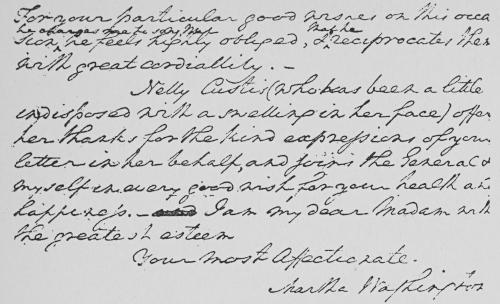 For your particular good wishes on this occa
he charges me to say that
sion, he feels highly obliged, & that he reciprocates them
with great cordiallity. —
Nelly Custis (who has been a little
indisposed with a swelling in her face) offers
her thanks for the kind expressions of your
letter in her behalf, and joins the General &
myself in every good wish for your health and
happiness. — I am my dear Madam with
the greatest esteem
Your most Affectionate.
Martha Washington